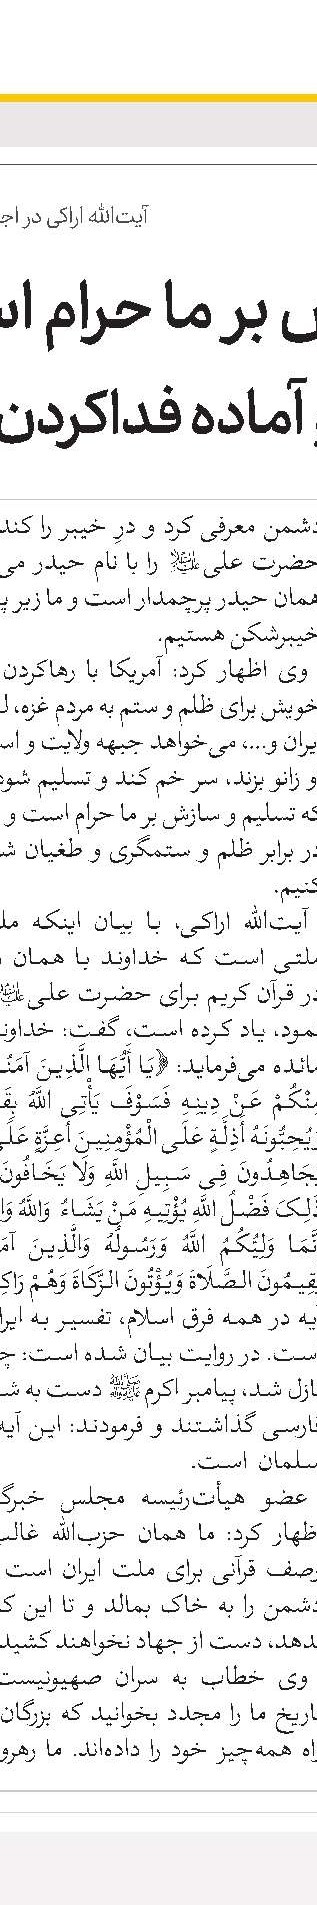 آیت‌الله اراکی در
بر ما حرام
آماده فداکردن
دشمن معرفی کرد و درِ خیبر را کند
حضرت علی‌ﷺ را با نام حیدر می
همان حیدر پرچمدار است و ما زیر
خیبرشکن هستیم.
وی اظهار کرد: آمریکا با رهاکردن
خویش برای ظلم و ستم به مردم غزه،
یران و...، می‌خواهد جبهه ولایت و
و زانو بزند، سر خم کند و تسلیم شود
که تسلیم و سازش بر ما حرام است و
در برابر ظلم و ستمگری و طغیان
کنیم.
آیت‌الله اراکی، با بیان اینکه
ملتی است که خداوند با همان
در قرآن کریم برای حضرت علی
نمود، یاد کرده است، گفت:
مائده می‌فرماید: ﴿یَا أَیُّهَا الَّذِینَ
مِنْکُمْ عَنْ دِینِهِ فَسَوْفَ یَأْتِی اللَّهُ
یُحِبُّونَهُ أَذِلَّةٍ عَلَی الْمُؤْمِنِینَ أَعِزَّةٍ
یُجَاهِدُونَ فِی سَبِیلِ اللَّهِ وَلَا یَخَافُونَ
ذَلِکَ فَضْلُ اللَّهِ یُؤْتِیهِ مَنْ یَشَاءُ وَاللَّهُ
نَّمَا وَلِیُّکُمُ اللَّهُ وَرَسُولُهُ وَالَّذِینَ
یُقِیمُونَ الصَّلَاةَ وَیُؤْتُونَ الزَّکَاةَ وَهُمْ
آیه در همه فرق اسلام، تفسیر به
است. در روایت بیان شده است:
نازل شد، پیامبر اکرمﷺ دست به
فارسی گذاشتند و فرمودند: این آیه
سلمان است.
عضو هیأت‌رئیسه مجلس
ظهار کرد: ما همان حزب‌الله
وصف قرآنی برای ملت ایران است
دشمن را به خاک بمالد و تا این
ندهد، دست از جهاد نخواهند
وی خطاب به سران
تاریخ ما را مجدد بخوانید که بزرگان
راه همه‌چیز خود را داده‌اند. ما